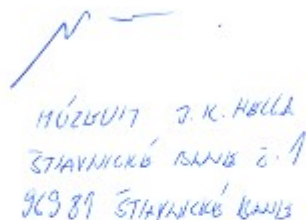 MÚZEUM J. K. HELLA
ŠTIAVNICKÉ BANE č. 1
969 81 ŠTIAVNICKÉ BANE